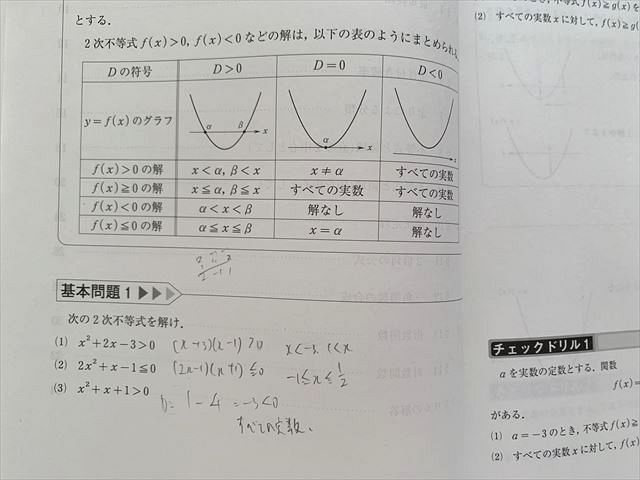 とする.
2次不等式 f(x)>0, f(x)<0 などの解は, 以下の表のようにまとめられ
Dの符号 D>0 D=0 D<0
y=f(x)のグラフ α β x α x
f(x)>0の解 x<α, β<x x≠α すべての実数
f(x)≧0の解 x≦α, β≦x すべての実数 すべての実数
f(x)<0の解 α<x<β 解なし 解なし
f(x)≦0の解 α≦x≦β x=α 解なし
基本問題1
次の2次不等式を解け.
(1) x²+2x-3>0 (x+3)(x-1)>0 x<-3, 1<x
(2) 2x²+x-1≦0 (2x-1)(x+1)≦0 -1≦x≦1/2
(3) x²+x+1>0
D= 1-4=-3<0
すべての実数.
不等式 f(x)≧g(x) を
(2) すべての実数 x に対して, f(x)≧g(
チェックドリル1
a を実数の定数とする. 関数
f(x)=
がある.
(1) a=-3のとき, 不等式 f(x)≧
(2) すべての実数 x に対して, f(x)